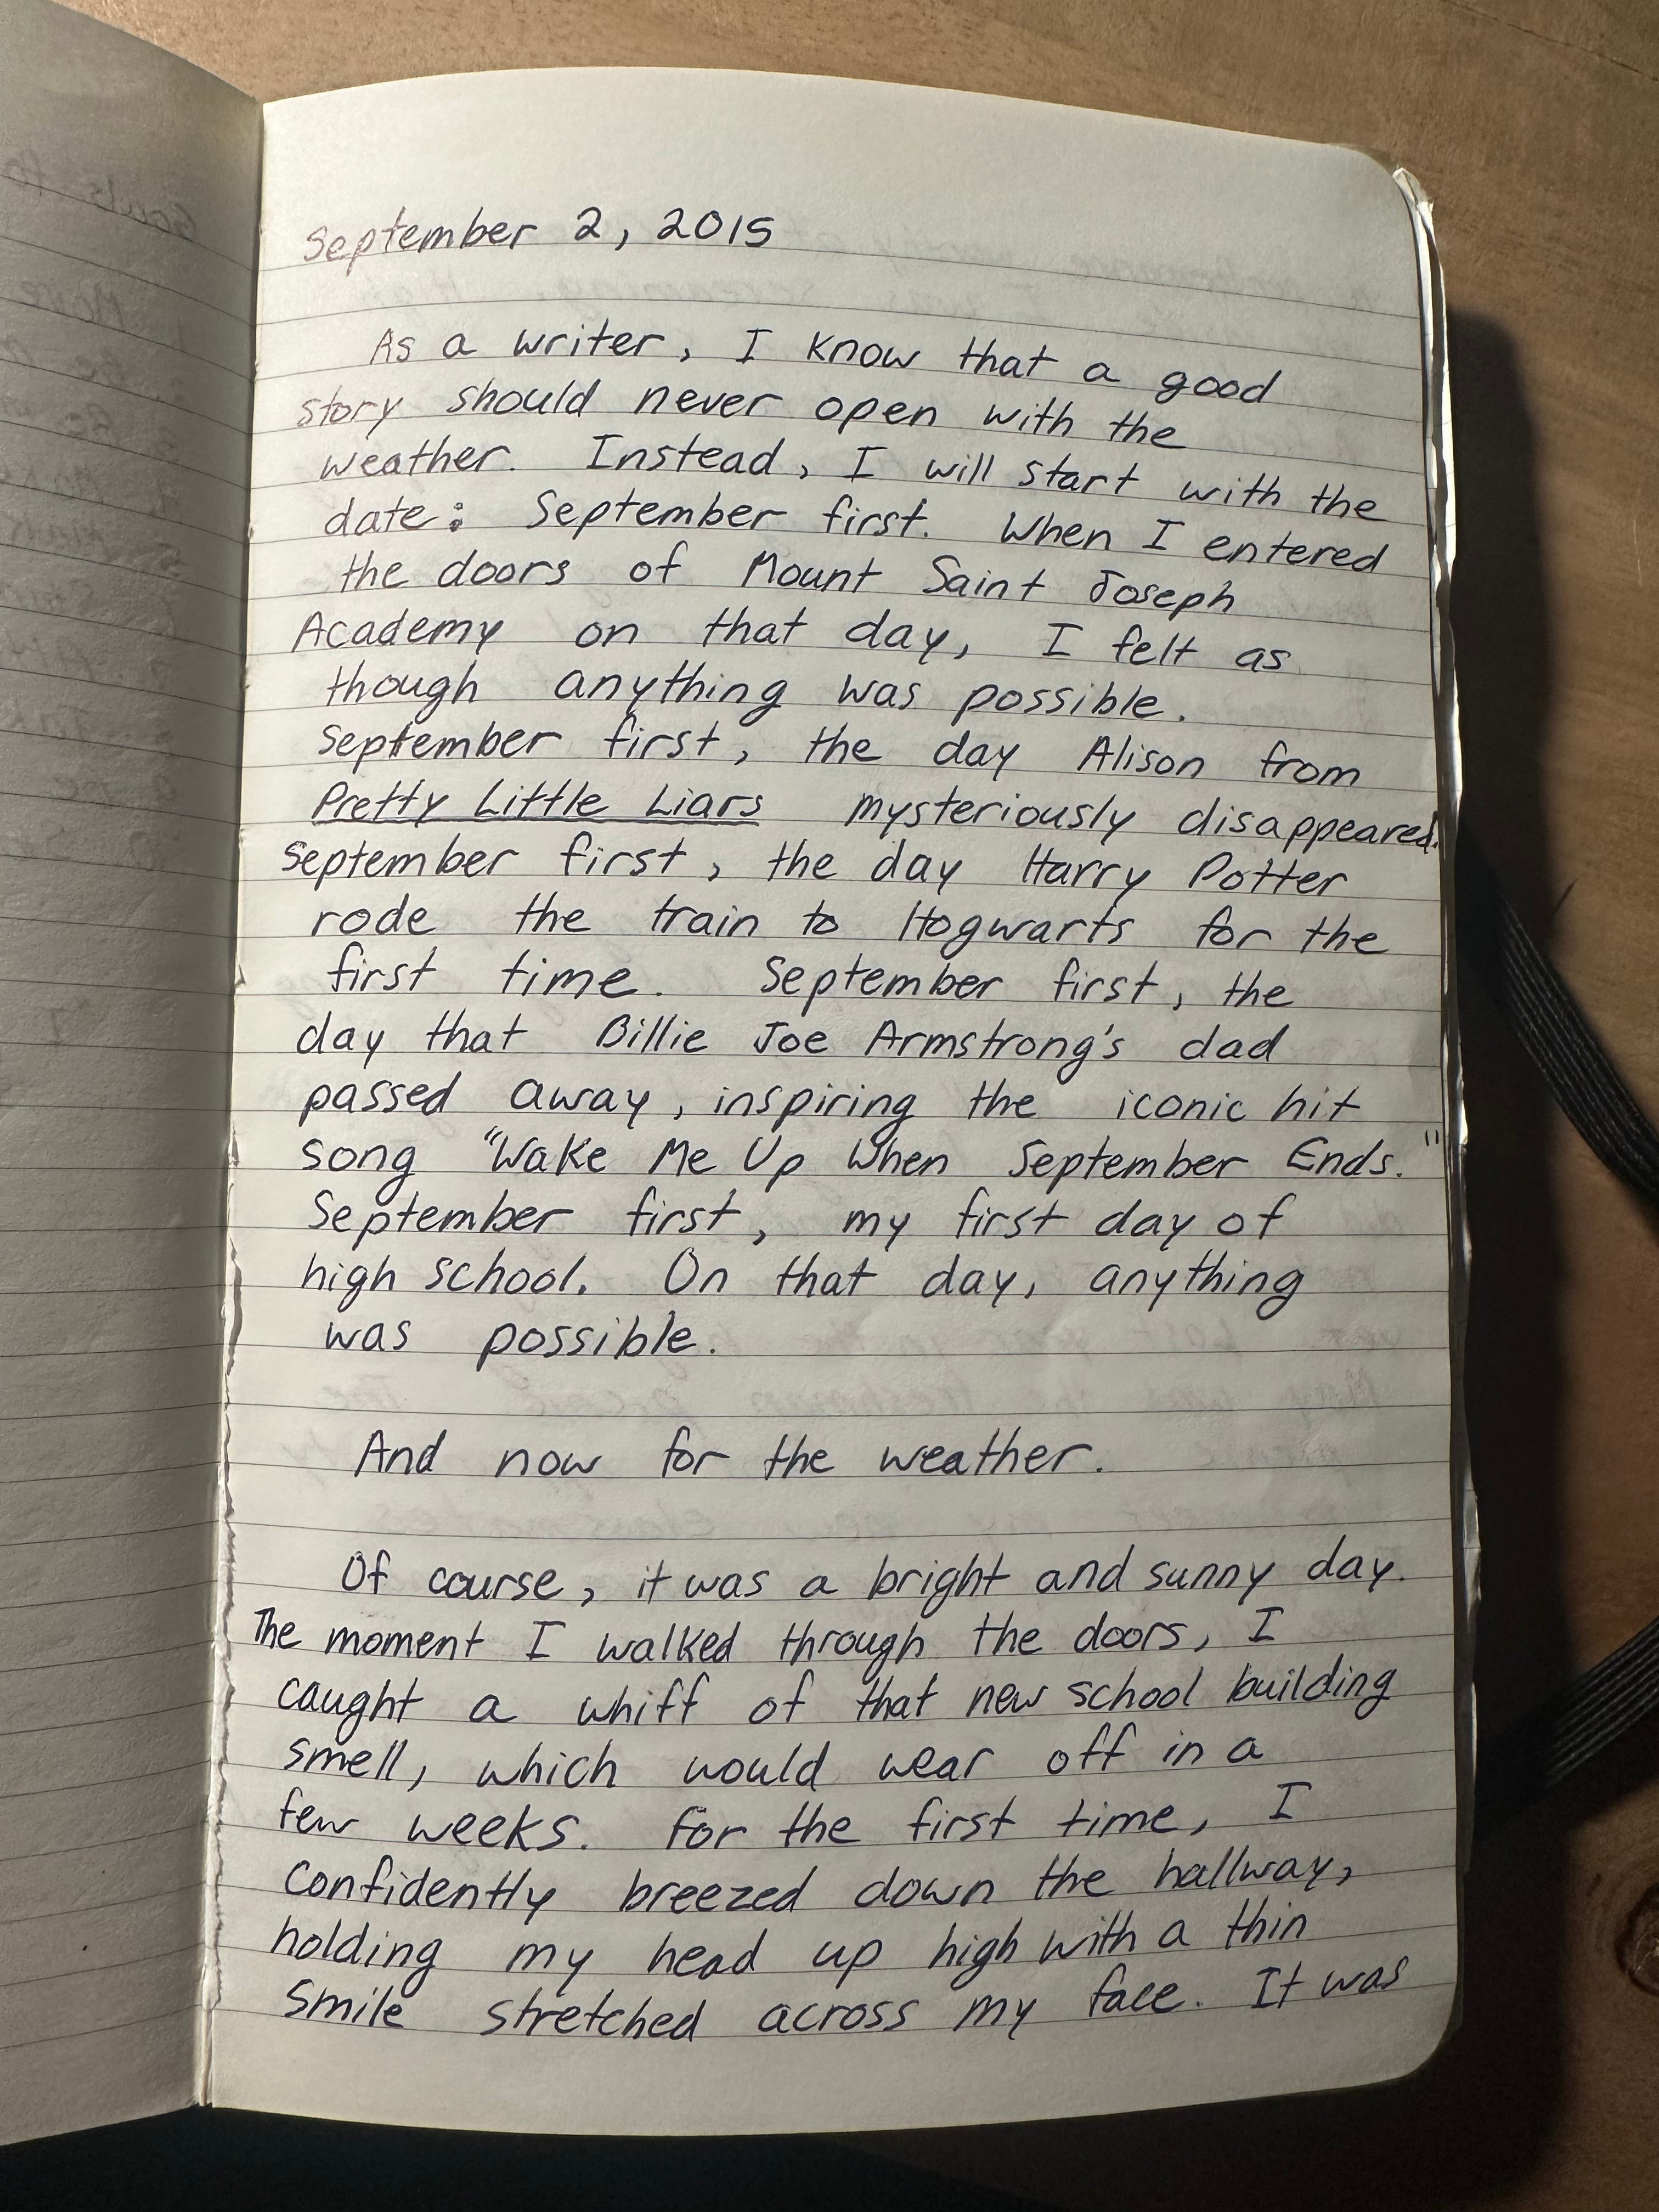 September 2, 2015
As a writer, I know that a good
story should never open with the
weather. Instead, I will start with the
date: September first. When I entered
the doors of Mount Saint Joseph
Academy on that day, I felt as
though anything was possible.
September first, the day Alison from
Pretty Little Liars mysteriously disappeared.
September first, the day Harry Potter
rode the train to Hogwarts for the
first time. September first, the
day that Billie Joe Armstrong's dad
passed away, inspiring the iconic hit
song "Wake Me Up When September Ends."
September first, my first day of
high school. On that day, anything
was possible.
And now for the weather.
Of course, it was a bright and sunny day.
The moment I walked through the doors, I
caught a whiff of that new school building
smell, which would wear off in a
few weeks. For the first time, I
confidently breezed down the hallway,
holding my head up high with a thin
smile stretched across my face. It was